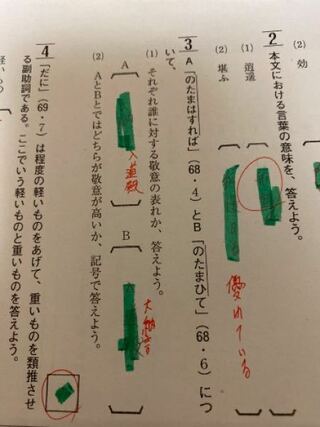 (2) 効
2 本文における言葉の意味を、答えよう。
(1) 逍遥
(2) 堪ふ
優れている
3 A「のたまはすれば」(68・4)とB「のたまひて」(68・6)につ
いて、
(1) それぞれ誰に対する敬意の表れか、答えよう。
A
入道殿
B
大納言
(2) AとBとではどちらが敬意が高いか、記号で答えよう。
4 「だに」(69・7)は程度の軽いものをあげて、重いものを類推させ
る副助詞である。ここでいう軽いものと重いものを答えよう。
軽いもの